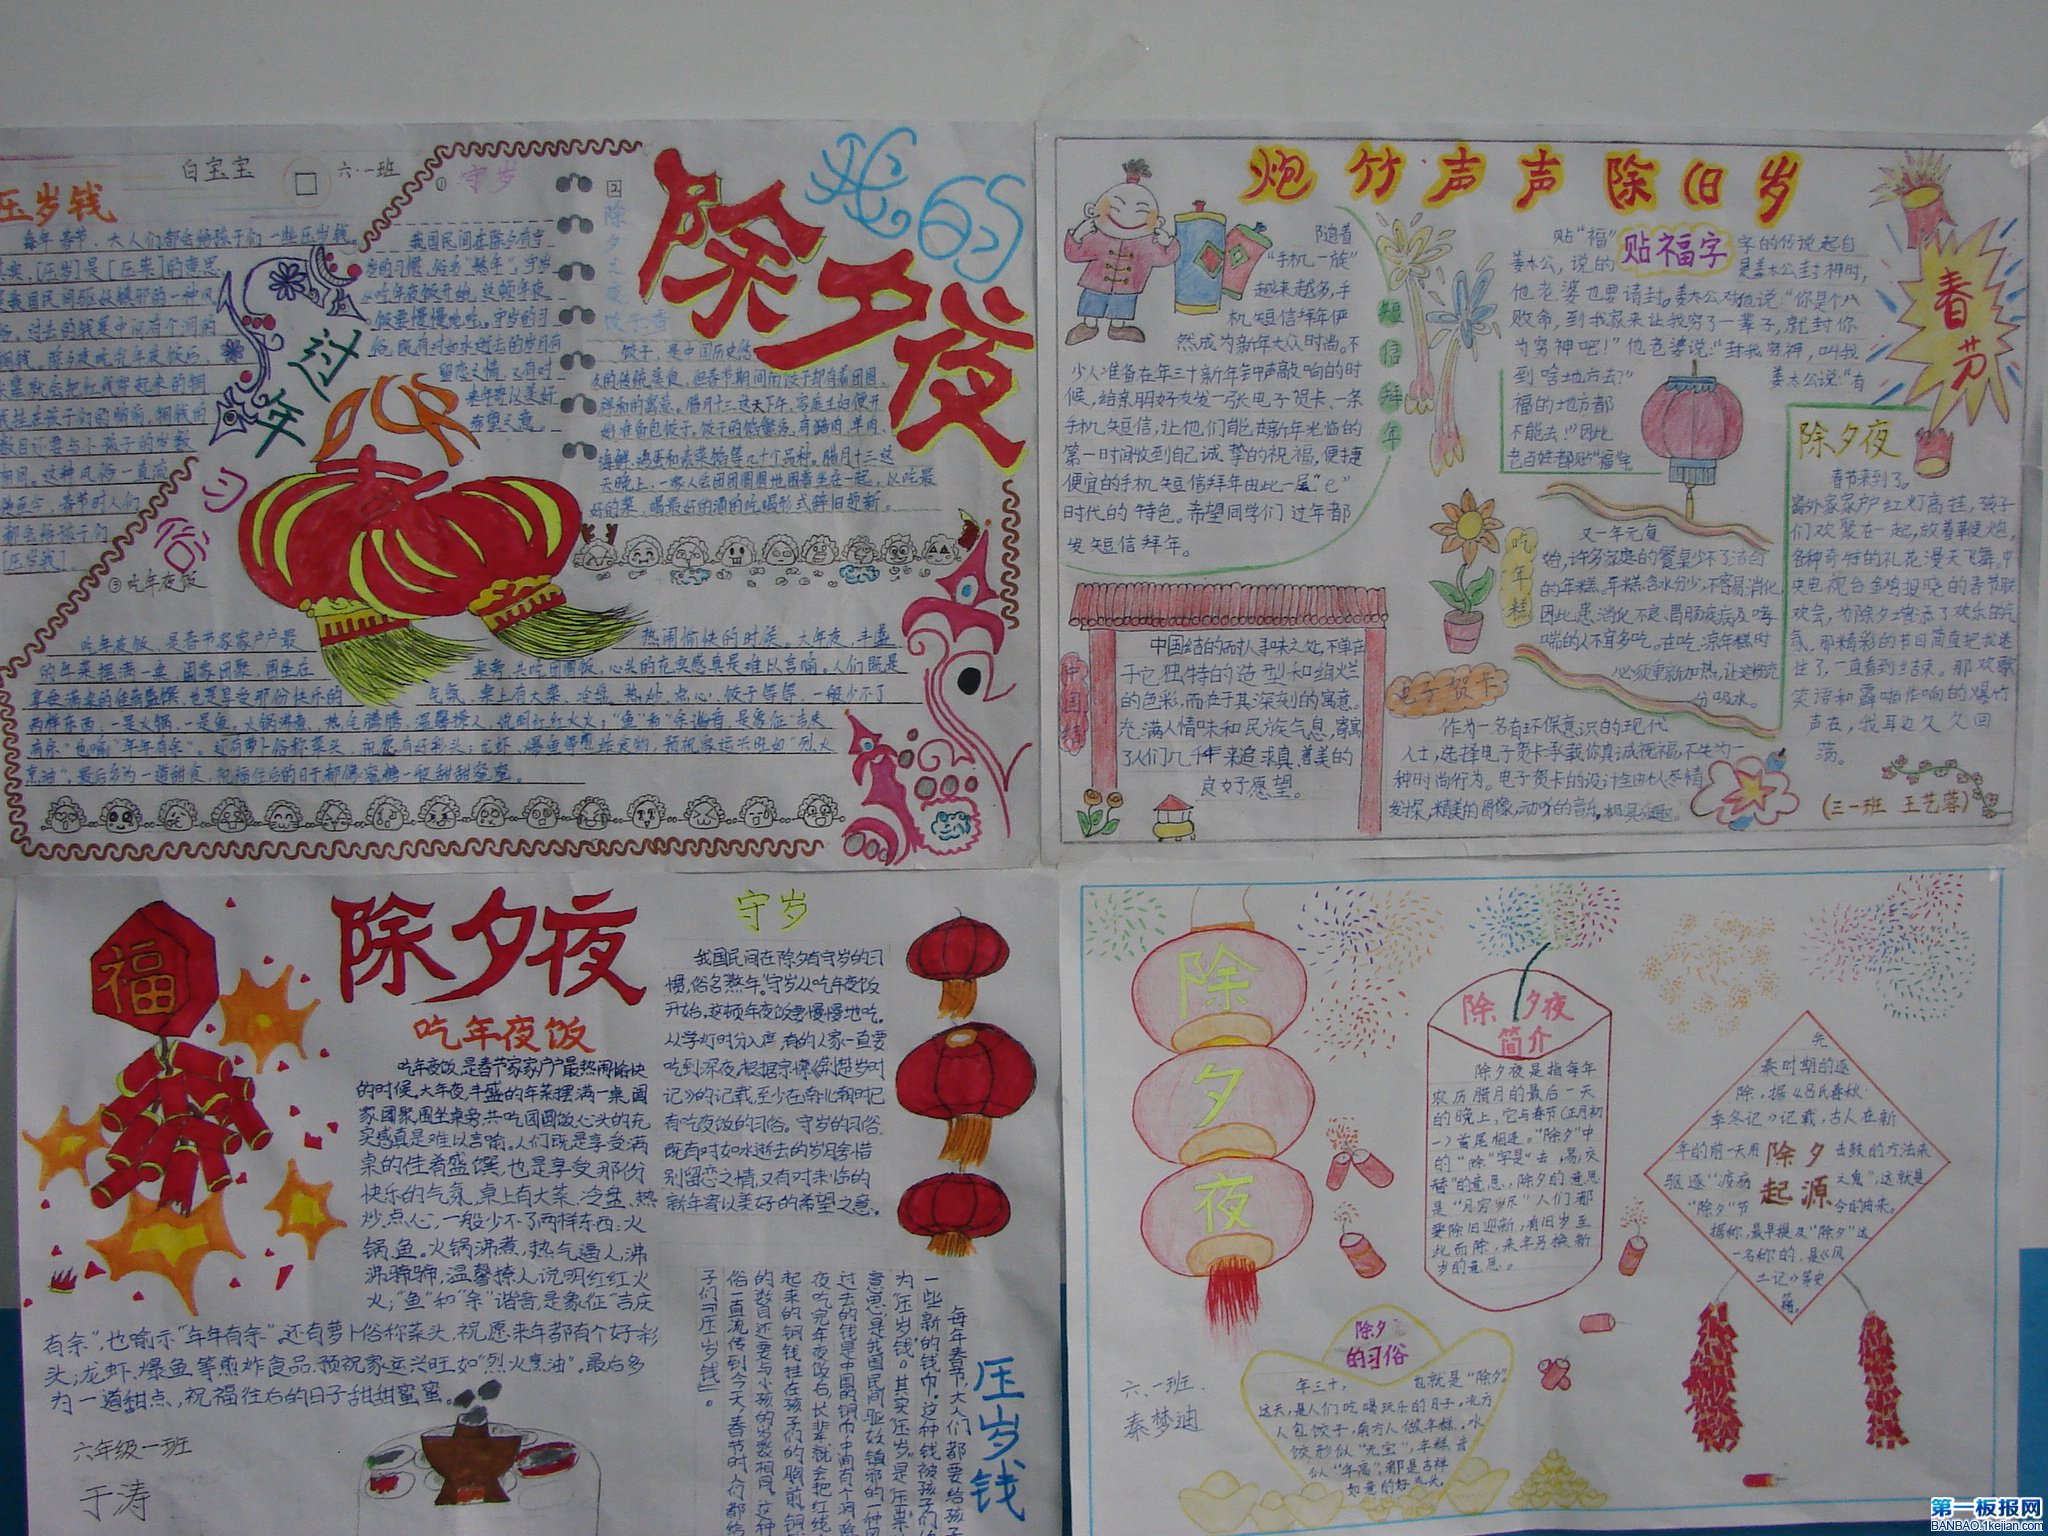 白宝宝
六.一班
压岁钱
每年春节,大人们都会给孩子们一些压岁钱。
我国民间驱妖镇邪的一种风
俗。过去的钱是中间有个洞的
铜钱。除夕夜吃完年夜饭后,
数目还要与小孩子的岁数
相同。这种风俗一直流
传至今,春节时人们
都会给孩子们
[压岁钱]。
① 守岁
我国民间在除夕有守
岁的习惯,俗名"熬年"。守岁
从吃年夜饭开始,这顿年夜
饭要慢慢地吃。守岁的习
俗,既有对如水逝去的岁月有
留恋之情,又有对
来年寄以美好
希望之意。
过年习俗
2
除夕之夜饺子香
我的
除夕夜
饺子,是中国历史悠
久的传统美食,但春节期间的饺子却有着团圆、
海鲜、鸡蛋和素菜馅等几十个品种。腊月十三这
天晚上,一家人会团团圆圆地围着坐在一起,以吃最
好的菜、喝最好的酒的吃喝形式辞旧迎新。
③吃年夜饭
吃年夜饭,是春节家家户户最
热闹愉快的时候。大年夜,丰盛
的年菜摆满一桌,阖家团聚,围坐在
桌旁,共吃团圆饭,心头的充实感真是难以言喻。人们既是
享受满桌的佳肴盛馔,也是享受那份快乐的
气氛。桌上有大菜、冷盘、热炒、点心、饺子等等,一般少不了
两样东西,一是火锅,一是鱼。火锅沸煮,热气腾腾,温馨撩人,说明红红火火;"鱼"和"余"谐音,是象征"吉庆
有余"也喻"年年有余"。还有萝卜俗称菜头,祝愿有好彩头;龙虾、爆鱼等煎炸食物,预祝家运兴旺如"烈火
烹油"。最后多为一道甜食,祝福往后的日子都像蜜糖一般甜甜蜜蜜。
炮竹声声除旧岁
短信拜年
随着
"手机一族"
越来越多,手
机短信拜年俨
然成为新年大众时尚。不
少人准备在年三十新年钟声敲响的时
候,给亲朋好友发一张电子贺卡、一条
手机短信,让他们能在新年光临的
第一时间收到自己诚挚的祝福,便捷
便宜的手机短信拜年由此一展"e"
时代的特色。希望同学们过年都
发短信拜年。
贴福字
贴"福"字的传说起自
姜太公,说的是姜太公封神时,
他老婆也要请封。姜太公对他说:"你是个八
败命,到我家来让我穷了一辈子,就封你
为穷神吧!"他老婆说:"封我穷神,叫我
到啥地方去?"姜太公说:"有
福的地方都
不能去!"因此
老百姓都贴"福"字。
春节
除夕夜
春节来到了。
窗外家家户户红灯高挂,孩子
们欢聚在一起,放着鞭炮,
各种奇特的礼花漫天飞舞。中
央电视台金鸡报晓的春节联
欢会,为除夕增添了欢乐的气
氛。那精彩的节目简直把我迷
住了,一直看到结束。那欢歌
笑语和霹啪作响的爆竹
声在,我耳边久久回
荡。
吃年糕
又一年元复
始,许多家庭的餐桌少不了洁白
的年糕。年糕含水分少,不容易消化
因此患消化不良、胃肠疾病及哮
喘的人不宜多吃。在吃凉年糕时
必须重新加热,让这糕充
分吸水。
中国结
中国结的耐人寻味之处,不单在
于它独特的造型和绚烂
的色彩,而在于其深刻的寓意。
充满人情味和民族气息,寄寓
了人们几千年来追求真、善美的
良好愿望。
电子贺卡
作为一名有环保意识的现代
人士,选择电子贺卡承载你真诚祝福,不失为一
种时尚行为。电子贺卡的设计全由你尽情
发挥,精美的图像,动听的音乐,极具乐趣。
(三一班 王艺蓉)
福
除夕夜
吃年夜饭
吃年夜饭,是春节家家户户最热闹愉快
的时候。大年夜,丰盛的年菜摆满一桌,阖
家团聚,围坐桌旁,共吃团圆饭,心头的充
实感真是难以言喻。人们既是享受满
桌的佳肴盛馔,也是享受那份
快乐的气氛。桌上有大菜、冷盘、热
炒、点心,一般少不了两样东西:火
锅、鱼。火锅沸煮,热气逼人,沸
沸腾腾,温馨撩人,说明红红火
火;"鱼"和"余"谐音,是象征"吉庆
有余",也喻示"年年有余"。还有萝卜俗称菜头,祝愿来年都有个好彩
头;龙虾、爆鱼等煎炸食品,预祝家运兴旺如"烈火烹油"。最后多
为一道甜点,祝福往后的日子甜甜蜜蜜。
六年级一班
于涛
守岁
我国民间在除夕有守岁的习
惯,俗名熬年。守岁从吃年夜饭
开始,这顿年夜饭要慢慢地吃。
从掌灯时分入席,有的人家一直要
吃到深夜。根据宗懔《荆楚岁时
记》的记载,至少在南北朝时记
有吃夜饭的习俗。守岁的习俗,
既有对如水逝去的岁月含惜
别留恋之情,又有对来临的
新年寄以美好的希望之意。
压岁钱
每年春节,大人们都要给孩子
为"压岁钱"。其实"压岁"是"压祟"
意思,是我国民间驱妖镇邪的一种风
夜吃完年夜饭后,长辈就会把红线
起来的铜钱挂在孩子们的胸前,铜钱
的数目还要与小孩的岁数相同。这种
俗一直流传到今天,春节时,人们都给
子们「压岁钱」。
除夕夜
除夕夜
简介
除夕夜是指每年
农历腊月的最后一天
的晚上,它与春节(正月初
一)首尾相连。"除夕"中
的"除"字是"去;易;交
替"的意思,除夕的意思
是"月穷岁尽"人们都
要除旧迎新,有旧岁至
此而除,来年另换新
岁的意思。
除夕
起源
先
秦时期的逐
除,据《吕氏春秋·
季冬记》记载,古人在新
年的前一天用击鼓的方法来
驱逐"疫疠之鬼",这就是
"除夕"节令的由来。
据称,最早提及"除夕"这
一名称的,是《风
土记》等史
籍。
除夕
的习俗
年三十,也就是"除夕"
这天,是人们吃喝玩乐的日子。北方
人包饺子,南方人做年糕。水
饺形似"元宝",年糕音
似"年高",都是吉祥
如意的好兆头。
六.一班
秦梦迪
第一板报网
BANBAO.1kejian.com